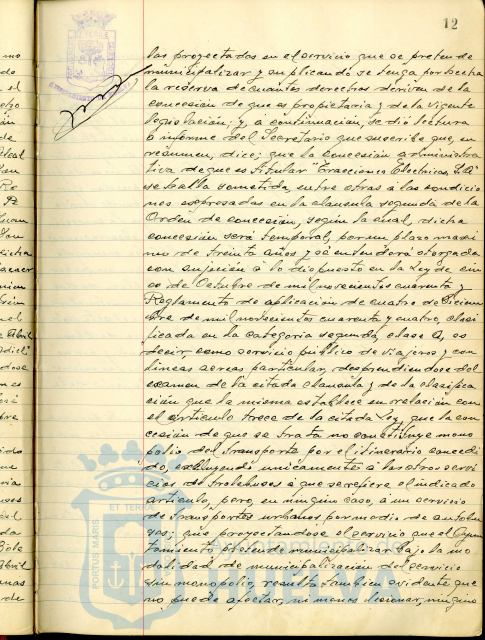 12
las proyectadas en el servicio que se pretende
municipalizar y suplicando se tenga por hecha
la reserva de cuantos derechos deriven de la
concesión de que es propietaria y de la vigente
legislación; y, a continuación, se dio lectura
a informe del Secretario que suscribe que, en
resúmen, dice; que la concesión administra
tiva de que es titular "Tracciones Electricas, S.A."
se halla sometida, entre otras a las condicio
nes expresadas en la clausula segunda de la
Orden de concesión, según la cual, dicha
concesión será temporal, por un plazo maxi
mo de treinta años y se entenderá otorgada
con sujeción a lo dispuesto en la Ley de cin
co de Octubre de mil novecientos cuarenta y
Reglamento de aplicación de cuatro de Diciem
bre de mil novecientos cuarenta y cuatro, clasi
ficada en la categoria segunda, clase A, es
decir, como servicio público de viajeros y con
lineas aereas particular, desprendiendose del
examen de la citada clausula y de la clasifica
ción que la misma establece en relación con
el articulo trece de la citada Ley, que la con
cesión de que se trata no constituye mono
polio del transporte por el itinerario concedi
do, excluyendo unicamente a los otros servi
cios de trolebuses a que se refiere el indicado
articulo, pero, en ningún caso, a un servicio
de transportes urbanos por medio de autobu
ses; que proyectandose el servicio que el Ayun
tamiento pretende municipalizar bajo la mo
dalidad de municipalización del servicio
sin monopolio, resulta tambien evidente que
no puede afectar, ni menos lesionar, ningúno
ET TERRA
PORTUS MARIS
Ayuntamiento de